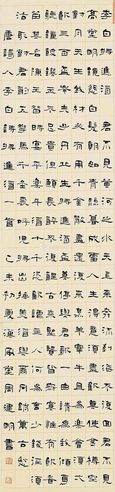 李白將進酒君不見黃河之水天上來奔流到海不復回君不見
高堂明鏡悲白髮朝如青絲暮成雪人生得意須盡歡莫使金樽空
對月天生我材必有用千金散盡還復來烹羊宰牛且為樂會須一
飲三百杯岑夫子丹丘生將進酒杯莫停與君歌一曲請君為我
耳聽鐘鼓饌玉不足貴但願長醉不復醒古來聖賢皆寂寞惟有飲
者留其名陳王昔時宴平樂斗酒十千恣歡謔主人何為言少錢徑須
沽取對君酌五花馬千金裘呼兒將出換美酒與爾同銷萬古愁
唐詩人李白將進酒一首 己未初夏 明書